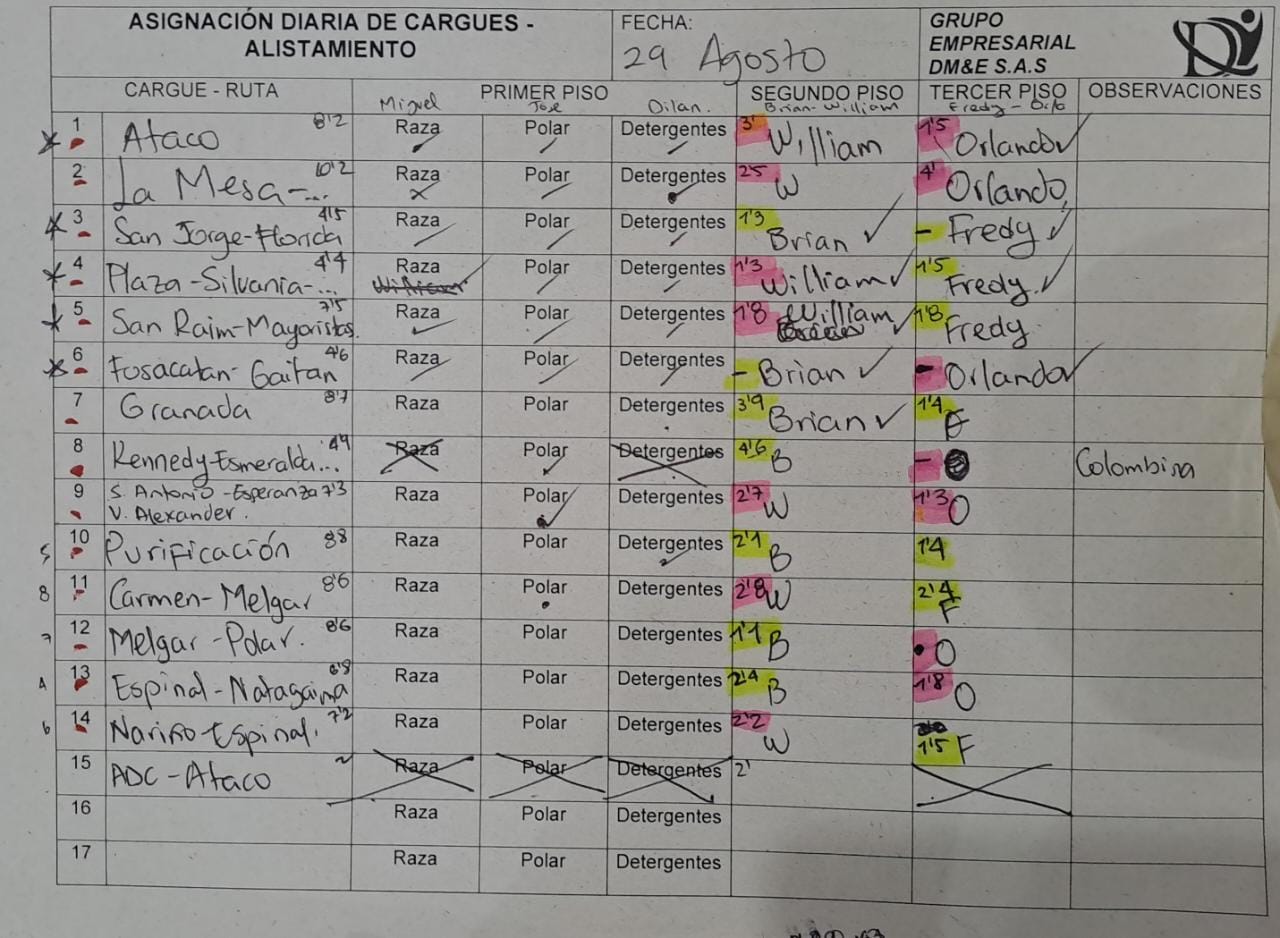 ASIGNACIÓN DIARIA DE CARGUES -
ALISTAMIENTO
FECHA:
29 Agosto
GRUPO
EMPRESARIAL
DM&E S.A.S
CARGUE - RUTA PRIMER PISO SEGUNDO PISO TERCER PISO OBSERVACIONES
Miguel Jose Dilan. Brian-William Fredy - Orlo
1 Ataco 8'2 Raza Polar Detergentes 3' William 1'5 Orlando
2 La Mesa-... 10'2 Raza Polar Detergentes 25 W 4' Orlando
3 San Jorge-Florida 4'5 Raza Polar Detergentes 1'3 Brian - Fredy
4 Plaza-Silvania-... 4'4 Raza Polar Detergentes 1'3 William 1'5 Fredy
5 San Raim-Mayoristas. 7'5 Raza Polar Detergentes 1'8 William 1'8 Fredy
6 Fusacatan-Gaitan 4'6 Raza Polar Detergentes - Brian - Orlando
7 Granada 8'7 Raza Polar Detergentes 3'9 Brian 1'4 F
8 Kennedy-Esmeralda... 4'9 Raza Polar Detergentes 4'6 B - Colombina
9 S. Antonio -Esperanza 7'3 Raza Polar Detergentes 2'7 W 1'3 O
V. Alexander.
5 10 Purificación 8'8 Raza Polar Detergentes 2'1 B 1'4
8 11 Carmen-Melgar 8'6 Raza Polar Detergentes 2'8 W 2'4 F
7 12 Melgar -Polar. 8'6 Raza Polar Detergentes 1'1 B O
4 13 Espinal-Natagaima 6'8 Raza Polar Detergentes 2'4 B 1'8 O
6 14 Nariño-Espinal. 7'2 Raza Polar Detergentes 2'2 W 1'5 F
15 ADC-Ataco Raza Polar Detergentes 2'
16 Raza Polar Detergentes
17 Raza Polar Detergentes